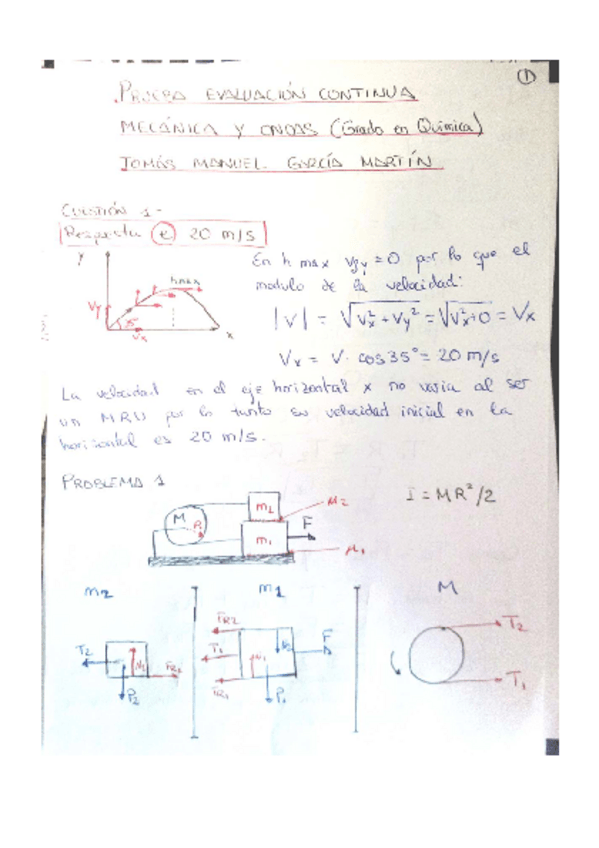 1
PRUEBA EVALUACIÓN CONTINUA
MECÁNICA Y ONDAS (Grado en Química)
TOMÁS MANUEL GARCÍA MARTÍN
CUESTIÓN 1-
Respuesta e 20 m/s
y
hmax
Vy
35°
Vx
x
En h max Vy = 0 por lo que el
modulo de la velocidad:
|V| = √Vx² + Vy² = √Vx² + 0 = Vx
Vx = V · cos 35° = 20 m/s
La velocidad en el eje horizontal x no varia al ser
un MRU por lo tanto su velocidad inicial en la
horizontal es 20 m/s.
PROBLEMA 1
M
R
m2
m1
μ2
F
μ1
I = MR²/2
m2
m1
M
T2
N2
FR2
P2
FR2
T1
FR1
N1
N2
F
P1
T2
T1